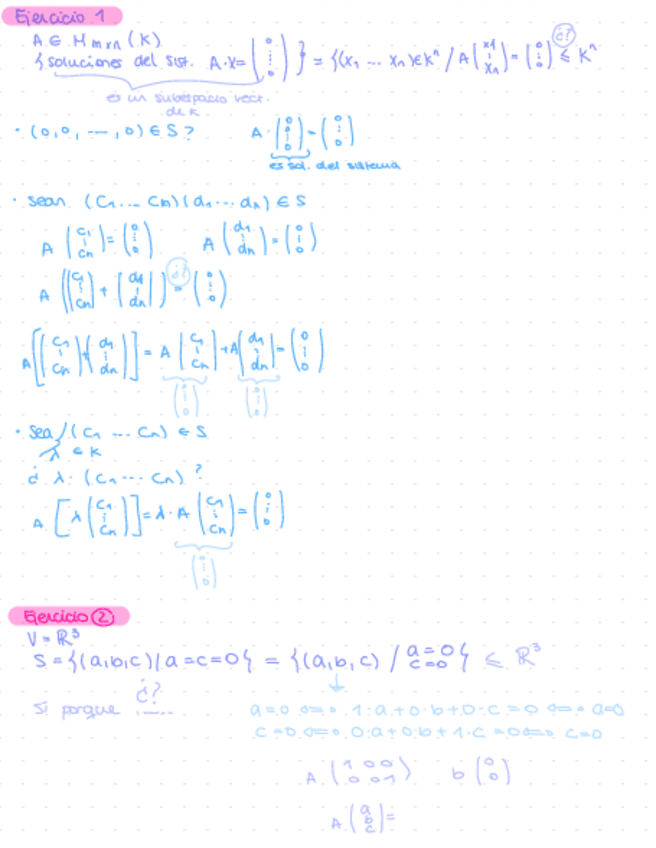 Ejercicio 1
A ∈ M mxn (K)
{ soluciones del sist. A·X = (0 ⋮ 0) } = {(x₁ ... xₙ) ∈ Kⁿ / A (x₁ ⋮ xₙ) = (0 ⋮ 0) ≤ Kⁿ
¿?
es un subespacio vect.
de K
· (0,0, ---, 0) ∈ S ? A · (0 0 ⋮ 0) = (0 ⋮ 0)
es sol. del sistema
· Sean (C₁ ... Cn) (d₁ ... dn) ∈ S
A (C₁ ⋮ Cn) = (0 ⋮ 0) A (d₁ ⋮ dn) = (0 ⋮ 0)
A ((C₁ ⋮ Cn) + (d₁ ⋮ dn)) ¿?= (0 ⋮ 0)
A [(C₁ ⋮ Cn) + (d₁ ⋮ dn)] = A (C₁ ⋮ Cn) + A (d₁ ⋮ dn) = (0 ⋮ 0)
(0 ⋮ 0) (0 ⋮ 0)
· Sea / (C₁ ... Cn) ∈ S
λ ∈ K
¿ λ · (C₁ ... Cn) ?
A [λ (C₁ ⋮ Cn)] = λ · A (C₁ ⋮ Cn) = (0 ⋮ 0)
(0 ⋮ 0)
Ejercicio 2
V = ℝ³
S = {(a,b,c) / a = c = 0} = {(a,b,c) / a = 0 c = 0} ≤ ℝ³
¿?
Si porque ......
a = 0 ⟺ 1·a + 0·b + 0·c = 0 ⟺ a = 0
c = 0 ⟺ 0·a + 0·b + 1·c = 0 ⟺ c = 0
A (1 0 0 / 0 0 1) b (0 0)
A · (a b c) =